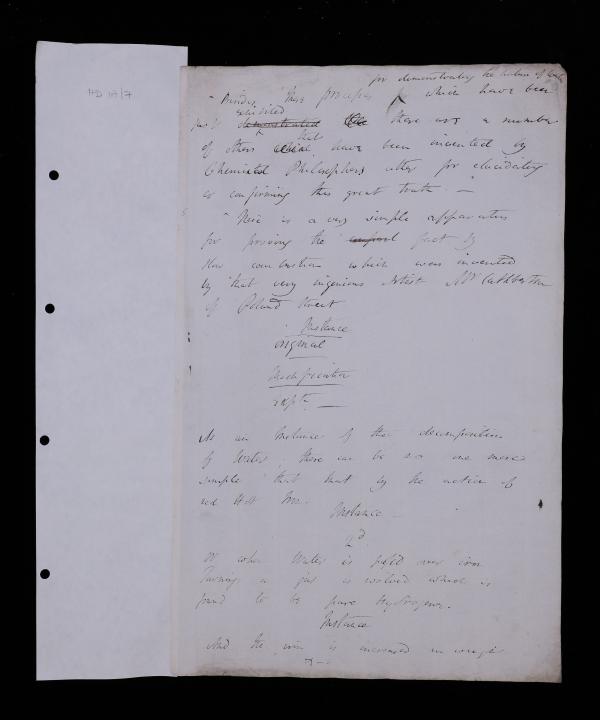 HD 1A/7
for demonstrating the nature of
"Besides these processes which have been
just elucidated demonstrated there are a number
of others that have been invented by
Chemical Philosophers either for elucidating
or confirming this great truth. —
"Here is a very simple apparatus
for proving the fact by
slow combustion which was invented
by that very ingenious Artist Mr Cuthbertson
of Poland Street
Instance
original
Modification
Expts —
As an Instance of the decomposition
of Water there can be no one more
simple that that by the action of
red Hot Iron.
Instance —
2d.
Or when Water is passed over iron
turning a gas is evolved which is
found to be pure Hydrogene.
Instance
And the iron is increased in weight